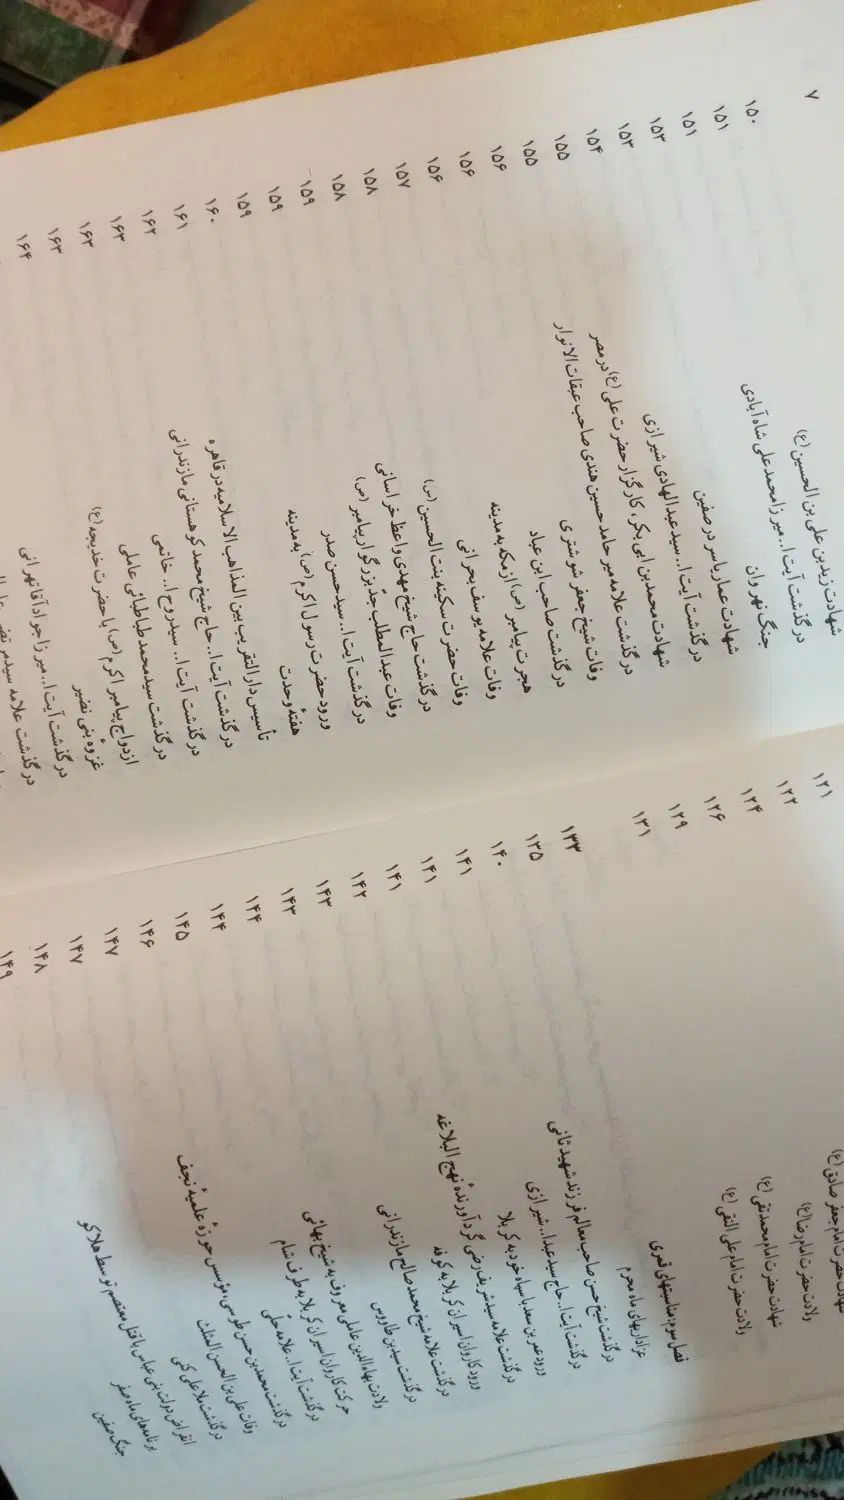 حضرت امام جعفر صادق (ع) ۱۲۴
ولادت حضرت امام رضا(ع) ۱۲۶
شهادت حضرت امام محمد تقی (ع) ۱۲۹
ولادت حضرت امام علی النقی (ع) ۱۳۱
فصل سوم: مناسبتهای قمری ۱۳۳
عزاداریهای ماه محرم ۱۳۵
درگذشت شیخ حسن صاحب معالم فرزند شهید ثانی ۱۴۰
درگذشت آیت ا... حاج سید عبدا... شیرازی ۱۴۱
ورود عمر بن سعد با سپاه خود به کربلا ۱۴۱
درگذشت علامه سید شریف رضی گردآورندهٔ نهج البلاغه ۱۴۱
ورود کاروان اسیران کربلا به کوفه ۱۴۲
درگذشت علامه شیخ محمد صالح مازندرانی ۱۴۳
درگذشت سید بن طاووس ۱۴۳
ولادت بهاءالدین عاملی معروف به شیخ بهائی ۱۴۴
حرکت کاروان اسیران کربلا به طرف شام ۱۴۴
درگذشت آیت ا... علامه حلّی ۱۴۵
درگذشت محمد بن حسن طوسی، مؤسس حوزهٔ علمیهٔ نجف ۱۴۶
وفات علی بن الحسن المثلث ۱۴۷
درگذشت ملا علی کنی ۱۴۷
انقراض دولت بنی عباس با قتل معتصم توسط هلاکو ۱۴۸
برنامه‌های ماه صفر ۱۴۹
جنگ صفین
۷
شهادت زید بن علی بن الحسین (ع) ۱۵۰
درگذشت آیت ا... میرزا محمد علی شاه آبادی ۱۵۱
جنگ نهروان ۱۵۱
شهادت عمار یاسر در صفین ۱۵۳
درگذشت آیت ا... سید عبدالهادی شیرازی ۱۵۳
شهادت محمد بن ابی بکر، کارگزار حضرت علی (ع) در مصر ۱۵۴
درگذشت علامه میر حامد حسین هندی صاحب عبقات الانوار ۱۵۵
وفات شیخ جعفر شوشتری ۱۵۵
درگذشت صاحب ابن عباد ۱۵۶
هجرت پیامبر (ص) از مکه به مدینه ۱۵۶
وفات علامه یوسف بحرانی ۱۵۶
وفات حضرت سکینه بنت الحسین (س) ۱۵۷
درگذشت حاج شیخ مهدی واعظ خراسانی ۱۵۸
وفات عبدالمطلب جدّ بزرگوار پیامبر (ص) ۱۵۸
درگذشت آیت ا... سید حسن صدر ۱۵۹
ورود حضرت رسول اکرم (ص) به مدینه ۱۵۹
هفتهٔ وحدت ۱۵۹
تأسیس دارالتقریب بین المذاهب الاسلامیه در قاهره ۱۶۰
درگذشت آیت ا... حاج شیخ محمد کوهستانی مازندرانی ۱۶۱
درگذشت آیت ا... سید روح ا... خاتمی ۱۶۲
درگذشت سید محمد طباطبائی عاملی ۱۶۳
ازدواج پیامبر اکرم (ص) با حضرت خدیجه (ع) ۱۶۳
غزوهٔ بنی نضیر ۱۶۳
درگذشت آیت ا... میرزا جواد آقا تهرانی ۱۶۴
درگذشت علامه سید مرتضی